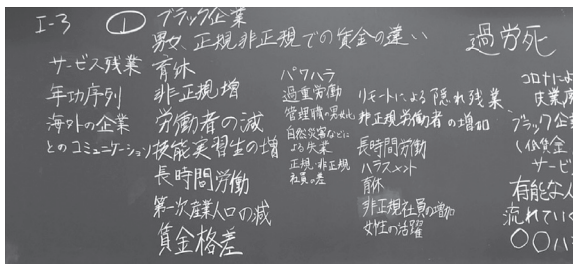 I-3
サービス残業
年功序列
海外の企業
とのコミュニケーション
①
ブラック企業
男女、正規非正規での賃金の違い
育休
非正規増
労働者の減
技能実習生の増
長時間労働
第一次産業人口の減
賃金格差
パワハラ
過重労働
管理職の男女比
自然災害などに
よる失業
正規・非正規
社員の差
リモートによる隠れ残業
非正規労働者の増加
長時間労働
ハラスメント
育休
非正規社員の増加
女性の活躍
過労死
コロナによ
失業
ブラック企
(低賃金
サービ
有能な人
流れてい
〇〇ハ